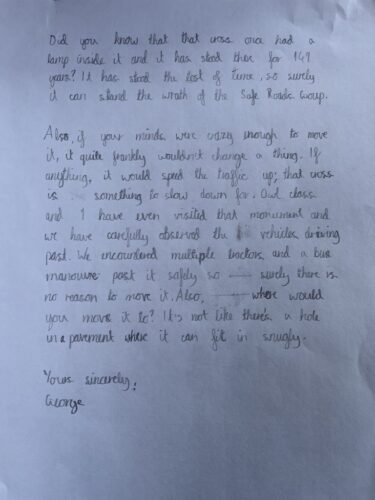 Did you know that that cross once had a
lamp inside it and it has stood there for 149
years? It has stood the test of time, so surely
it can stand the wrath of the Safe Roads Group.
Also, if your minds were crazy enough to move
it, it quite frankly wouldn't change a thing. If
anything, it would speed the traffic up; that cross
is something to slow down for. Owl class
and I have even visited that monument and
we have carefully observed the vehicles driving
past. We encountered multiple tractors and a bus
manouvre past it safely so surely there is
no reason to move it. Also, where would
you move it to? It's not like there's a hole
in a pavement where it can fit in snugly.
Yours sincerely,
George